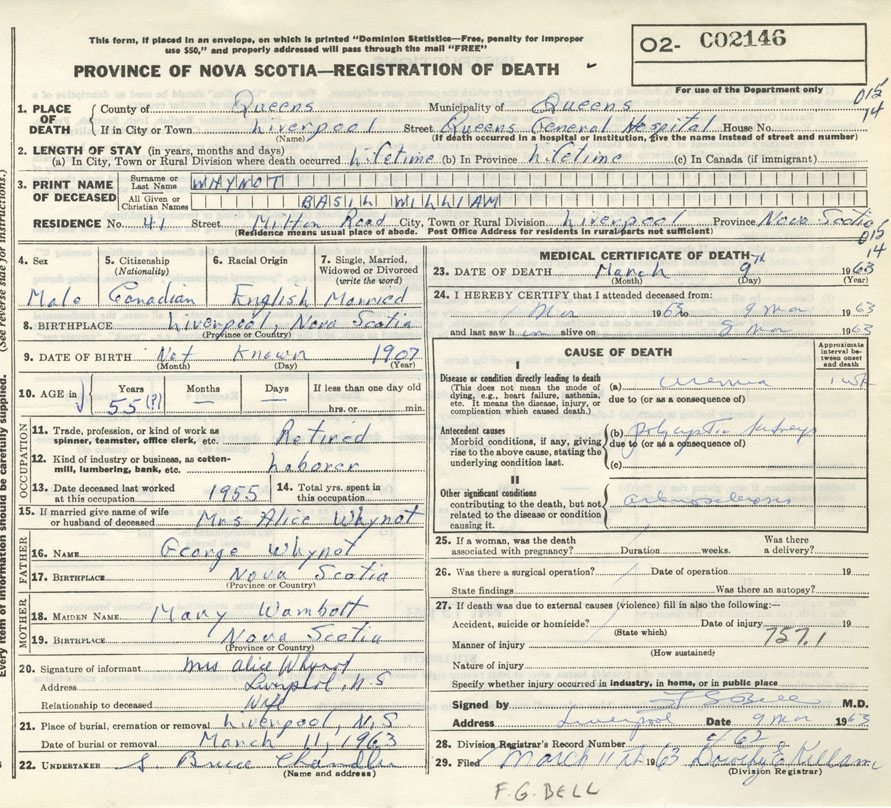 This form, if placed in an envelope, on which is printed "Dominion Statistics—Free, penalty for improper
use $50," and properly addressed will pass through the mail "FREE"
O2- C02146
PROVINCE OF NOVA SCOTIA—REGISTRATION OF DEATH
For use of the Department only
015
14
1. PLACE OF DEATH { County of Queens Municipality of Queens
If in City or Town Liverpool Street Queens General Hospital House No.
(Name) (If death occurred in a hospital or institution, give the name instead of street and number)
2. LENGTH OF STAY (in years, months and days)
(a) In City, Town or Rural Division where death occurred Lifetime (b) In Province Lifetime (c) In Canada (if immigrant)
3. PRINT NAME OF DECEASED { Surname or Last Name WHYNOT
All Given or Christian Names BASIL WILLIAM
RESIDENCE No. 41 Street Milton Road City, Town or Rural Division Liverpool Province Nova Scotia
(Residence means usual place of abode. Post Office Address for residents in rural parts not sufficient)
015
14
(See reverse side for instructions.)
Every item of information should be carefully supplied.
4. Sex 5. Citizenship (Nationality) 6. Racial Origin 7. Single, Married, Widowed or Divorced (write the word)
Male Canadian English Married
8. BIRTHPLACE Liverpool, Nova Scotia
(Province or Country)
9. DATE OF BIRTH Not Known 1907
(Month) (Day) (Year)
10. AGE in } Years Months Days If less than one day old
55 (?) — — hrs. or min.
OCCUPATION
11. Trade, profession, or kind of work as spinner, teamster, office clerk, etc. Retired
12. Kind of industry or business, as cotton-mill, lumbering, bank, etc. Laborer
13. Date deceased last worked at this occupation 1955 14. Total yrs. spent in this occupation
15. If married give name of wife or husband of deceased Mrs Alice Whynot
FATHER
16. NAME George Whynot
17. BIRTHPLACE Nova Scotia
(Province or Country)
MOTHER
18. MAIDEN NAME Mary Wambolt
19. BIRTHPLACE Nova Scotia
(Province or Country)
20. Signature of informant Mrs Alice Whynot
Address Liverpool, N.S
Relationship to deceased Wife
21. Place of burial, cremation or removal Liverpool, N.S
Date of burial or removal March 11, 1963
22. UNDERTAKER S. Bruce Chandler
(Name and address)
MEDICAL CERTIFICATE OF DEATH
23. DATE OF DEATH March 9th 1963
(Month) (Day) (Year)
24. I HEREBY CERTIFY that I attended deceased from:
1 Mar 1963 to 9 Mar 1963
and last saw h im alive on 8 Mar 1963
CAUSE OF DEATH
Approximate interval between onset and death
I
Disease or condition directly leading to death
(This does not mean the mode of dying, e.g., heart failure, asthenia, etc. It means the disease, injury, or complication which caused death.)
(a) uremia 1 wk
due to (or as a consequence of)
Antecedent causes
Morbid conditions, if any, giving rise to the above cause, stating the underlying condition last.
(b) Polycystic kidneys
due to (or as a consequence of)
(c)
II
Other significant conditions
contributing to the death, but not related to the disease or condition causing it.
arteriosclerosis
25. If a woman, was the death associated with pregnancy? Duration weeks. Was there a delivery?
26. Was there a surgical operation? Date of operation 19
State findings Was there an autopsy?
27. If death was due to external causes (violence) fill in also the following:—
Accident, suicide or homicide? Date of injury 19
(State which)
757.1
Manner of injury
(How sustained)
Nature of injury
Specify whether injury occurred in industry, in home, or in public place
Signed by F G Bell M.D.
Address Liverpool Date 9 Mar 1963
28. Division Registrar's Record Number 462
29. Filed March 11th 1963 Dorothy E Killam
(Division Registrar)
F.G. BELL